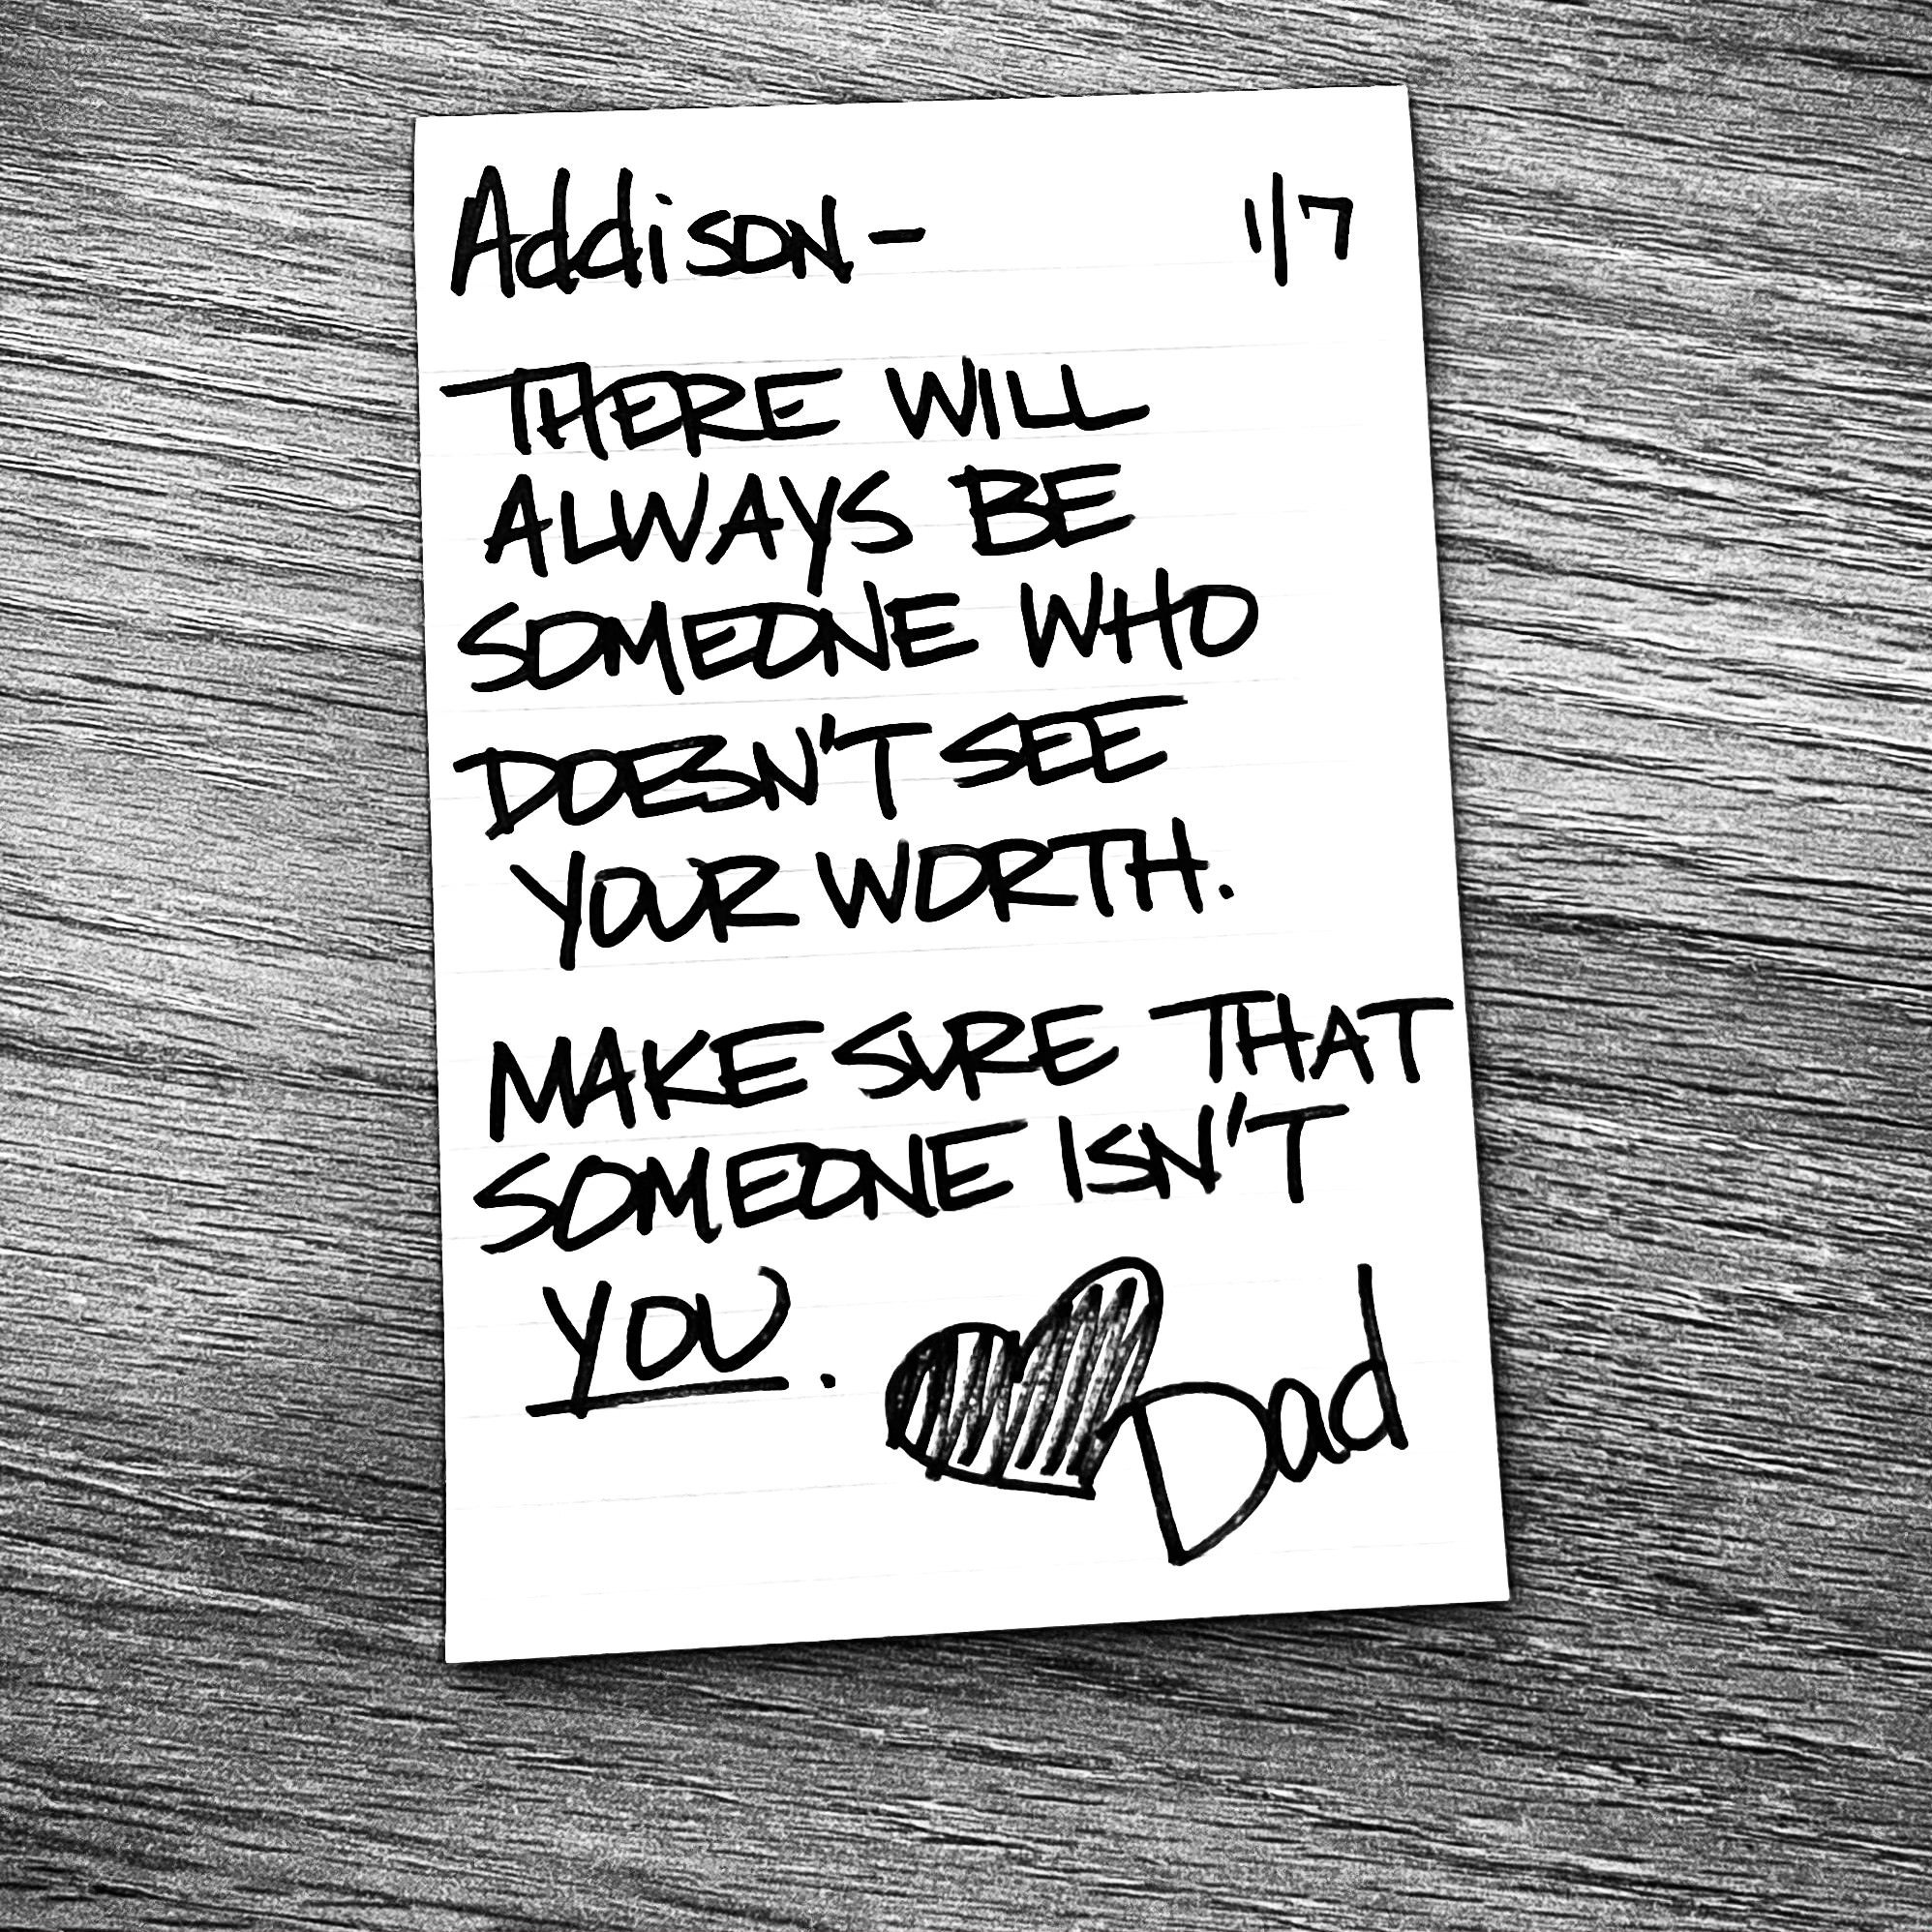 Addison - 1/7
THERE WILL
ALWAYS BE
SOMEONE WHO
DOESN'T SEE
YOUR WORTH.
MAKE SURE THAT
SOMEONE ISN'T
YOU.
Dad